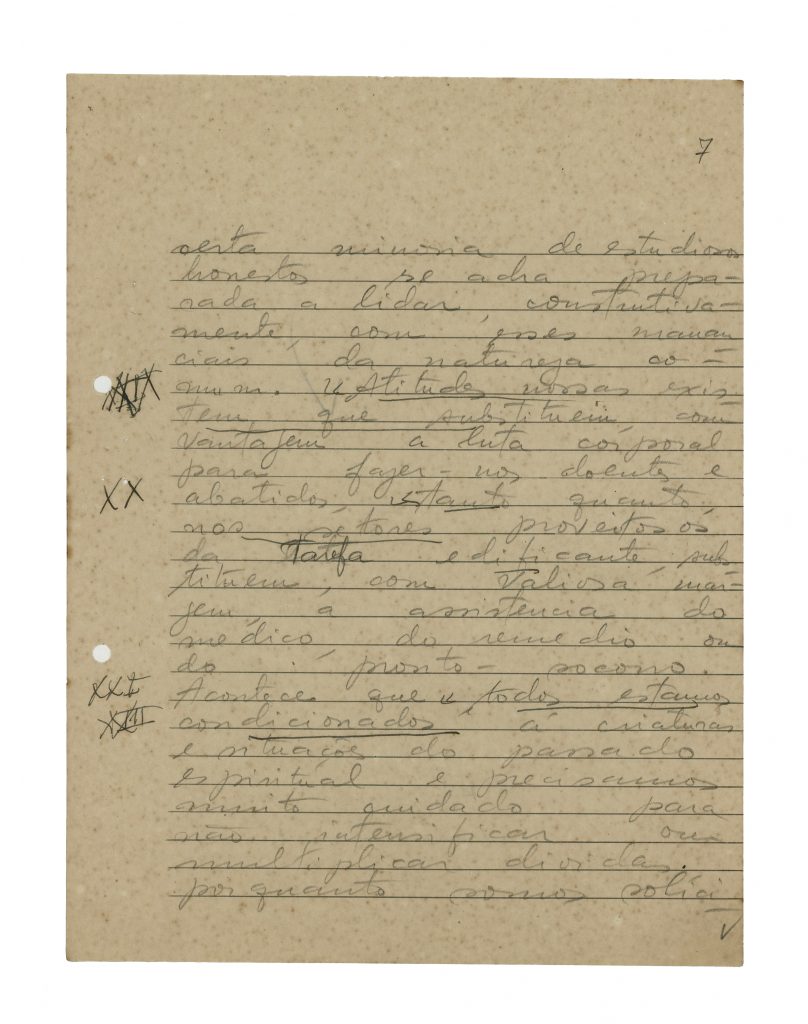 7
certa minoria de estudiosos
honestos se acha prepa-
rada a lidar, construtiva-
mente, com esses manan
ciais da natureza co=
mum. "Atitudes nossas exis
tem, que substituem, com
vantagem a luta corporal
XX
para fazer-nos doentes e
abatidos, tanto quanto,
nos setores proveitosos
da Tarefa edificante, subs
tituem, com valiosa mar=
jem, a assistência do
médico, do remedio ou
do pronto-socorro.
XXI
Acontece que " todos estamos
XXII
condicionados, á criaturas
e situações do passado
espiritual e precisamos
muito cuidado para
não intensificar ou
multiplicar dividas,
porquanto somos solici
V